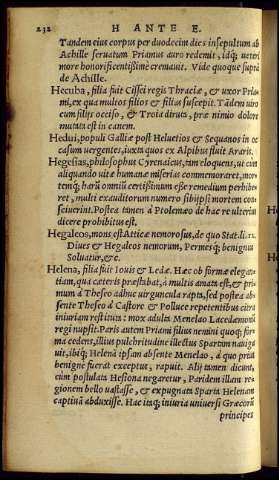 232 H ANTE E.
Tandem eius corpus per duodecim dies insepultum ab
Achille seruatum Priamus auro redemit, idq; ueteri
more honorificentissime cremauit. Vide quoque supra
de Achille.
Hecuba, filia fuit Cissei regis Thraciæ, & uxor Pria-
mi, ex qua multos filios & filias suscepit. Tādem uiro
cum filijs occiso, & Troia diruta, præ nimio dolore
mutata est in canem.
Hedui, populi Galliæ post Heluetios & Sequanos in oc-
casum uergentes, iuxta quos ex Alpibus fluit Araris.
Hegesias, philosophus Cyrenaicus, tam eloquens, ut cum
aliquando uitæ humanæ miserias commemoraret, mor-
temq; harū omniū certissimum esse remedium perhibe-
ret, multi ex auditorum numero sibijpsi mortem con-
sciuerint. Postea tamen à Ptolemæo de hac re ulterius
dicere prohibitus est.
Hegaleos, mons est Atticæ nemorosus, de quo Stat. li. 12.
Diues & Hegaleos nemorum, Permesq; benignus
Soluatur, &c.
Helena, filia fuit Iouis & Ledæ. Hæc ob formæ elegan-
tiam, qua cæteris præstabat, à multis amata est, & pri-
mum à Theseo adhuc uirguncula rapta, sed postea ab-
sente Theseo à Castore & Polluce repetentibus citra
iniuriam restituta: mox adulta Menelao Lacedæmoniū
regi nupsit. Paris autem Priami filius nemini quoq; for-
ma cedens, illius pulchritudine illectus Spartam nauiga-
uit, ibiq; Helenā ipsam absente Menelao, à quo prius
benigne fuerat exceptus, rapuit. Alij tamen dicunt,
cum postulata Hesiona negaretur, Paridem illam re-
gionem bello uastasse, & expugnata Sparta Helenam
captiuā abduxisse. Hac itaq; iniuria uniuersi Græcorū
principes